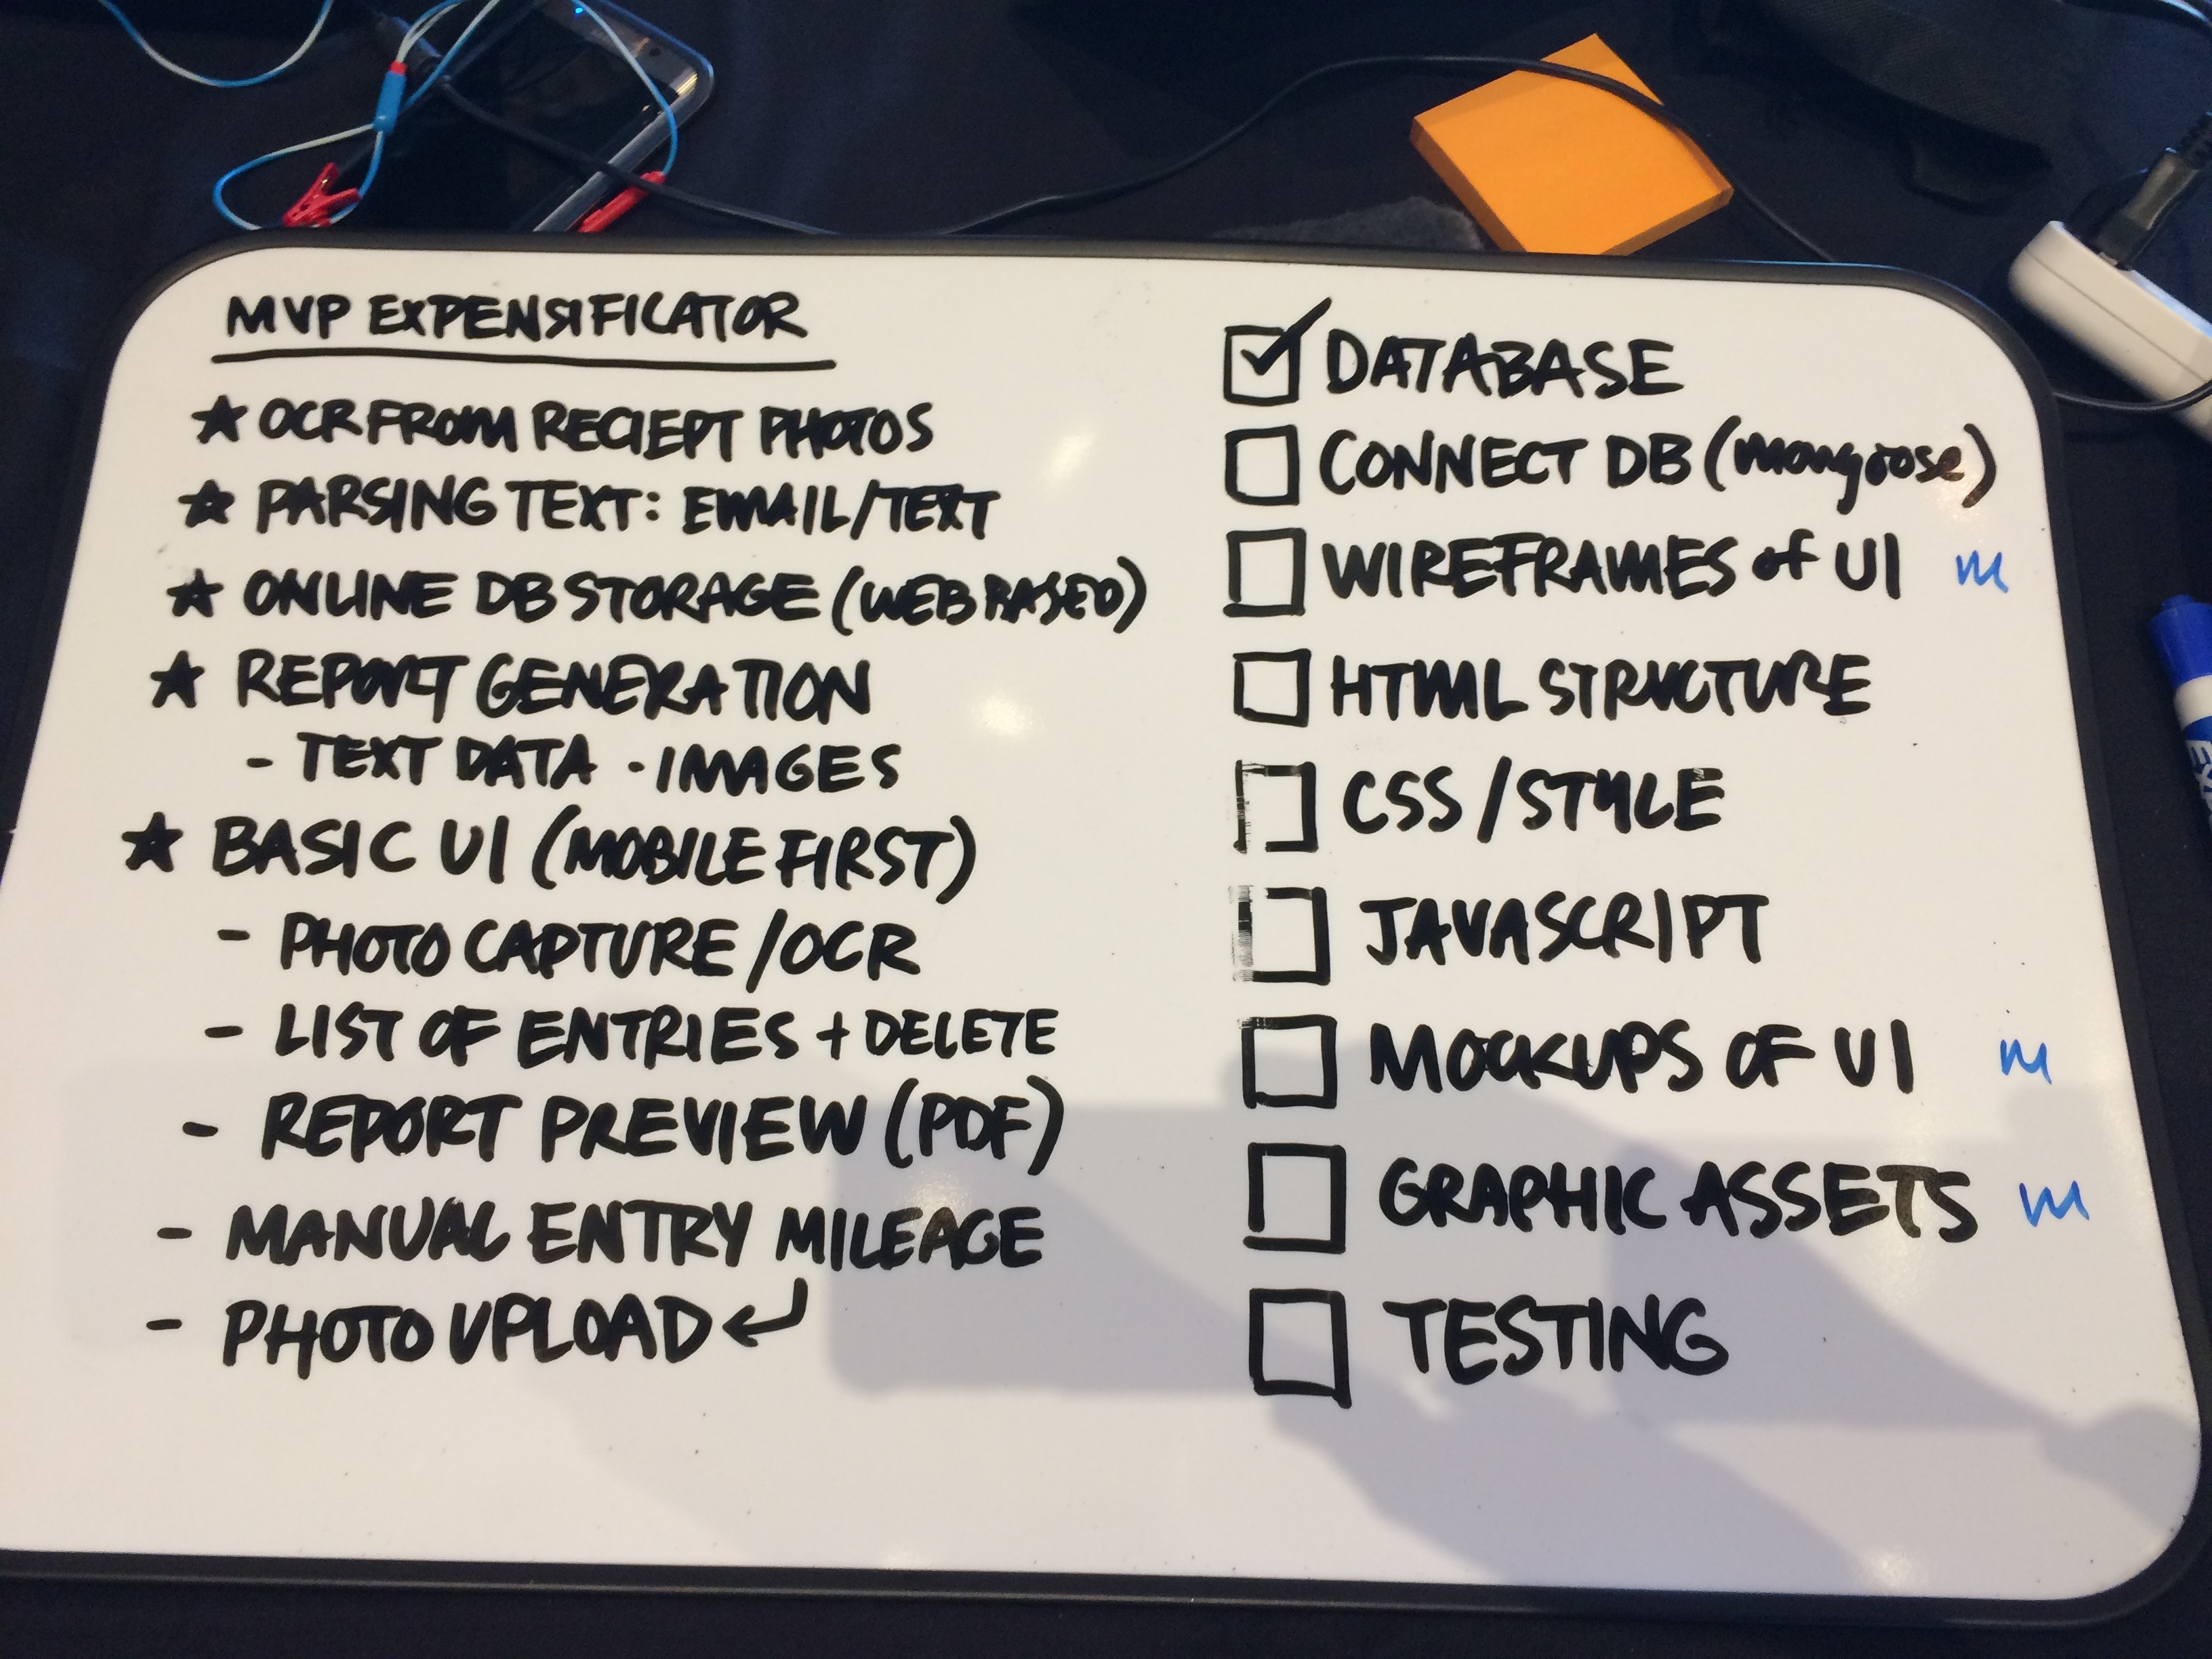 MVP EXPENSIFICATOR
★ OCR FROM RECIEPT PHOTOS
★ PARSING TEXT: EMAIL/TEXT
★ ONLINE DB STORAGE (WEB BASED)
★ REPORT GENERATION
- TEXT DATA · IMAGES
★ BASIC UI (MOBILE FIRST)
- PHOTO CAPTURE/OCR
- LIST OF ENTRIES + DELETE
- REPORT PREVIEW (PDF)
- MANUAL ENTRY MILEAGE
- PHOTO UPLOAD ↵
☑ DATABASE
☐ CONNECT DB (mongoose)
☐ WIREFRAMES of UI m
☐ HTML STRUCTURE
☐ CSS/STYLE
☐ JAVASCRIPT
☐ MOCKUPS OF UI m
☐ GRAPHIC ASSETS m
☐ TESTING